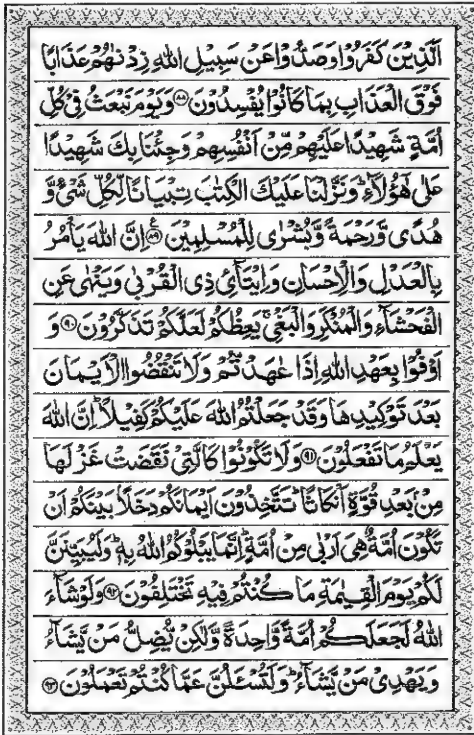 اَلَّذِیْنَ كَفَرُوْا وَصَدُّوْا عَنْ سَبِیْلِ اللّٰهِ زِدْنٰهُمْ عَذَابًا
فَوْقَ الْعَذَابِ بِمَا كَانُوْا یُفْسِدُوْنَ ﴿۸۸﴾ وَیَوْمَ نَبْعَثُ فِیْ كُلِّ
اُمَّةٍ شَهِیْدًا عَلَیْهِمْ مِّنْ اَنْفُسِهِمْ وَجِئْنَا بِكَ شَهِیْدًا
عَلٰی هٰۤؤُلَآءِ ؕ وَنَزَّلْنَا عَلَیْكَ الْكِتٰبَ تِبْیَانًا لِّكُلِّ شَیْءٍ وَّ
هُدًی وَّرَحْمَةً وَّبُشْرٰی لِلْمُسْلِمِیْنَ ﴿۸۹﴾ ع اِنَّ اللّٰهَ یَاْمُرُ
بِالْعَدْلِ وَالْاِحْسَانِ وَاِیْتَآئِ ذِی الْقُرْبٰی وَیَنْهٰی عَنِ
الْفَحْشَآءِ وَالْمُنْكَرِ وَالْبَغْیِ ۚ یَعِظُكُمْ لَعَلَّكُمْ تَذَكَّرُوْنَ ﴿۹۰﴾ وَ
اَوْفُوْا بِعَهْدِ اللّٰهِ اِذَا عٰهَدْتُّمْ وَلَا تَنْقُضُوا الْاَیْمَانَ
بَعْدَ تَوْكِیْدِهَا وَقَدْ جَعَلْتُمُ اللّٰهَ عَلَیْكُمْ كَفِیْلًا ؕ اِنَّ اللّٰهَ
یَعْلَمُ مَا تَفْعَلُوْنَ ﴿۹۱﴾ وَلَا تَكُوْنُوْا كَالَّتِیْ نَقَضَتْ غَزْلَهَا
مِنْۢ بَعْدِ قُوَّةٍ اَنْكَاثًا ؕ تَتَّخِذُوْنَ اَیْمَانَكُمْ دَخَلًۢا بَیْنَكُمْ اَنْ
تَكُوْنَ اُمَّةٌ هِیَ اَرْبٰی مِنْ اُمَّةٍ ؕ اِنَّمَا یَبْلُوْكُمُ اللّٰهُ بِهٖ ؕ وَلَیُبَیِّنَنَّ
لَكُمْ یَوْمَ الْقِیٰمَةِ مَا كُنْتُمْ فِیْهِ تَخْتَلِفُوْنَ ﴿۹۲﴾ وَلَوْ شَآءَ
اللّٰهُ لَجَعَلَكُمْ اُمَّةً وَّاحِدَةً وَّلٰكِنْ یُّضِلُّ مَنْ یَّشَآءُ
وَیَهْدِیْ مَنْ یَّشَآءُ ؕ وَلَتُسْـَٔلُنَّ عَمَّا كُنْتُمْ تَعْمَلُوْنَ ﴿۹۳﴾